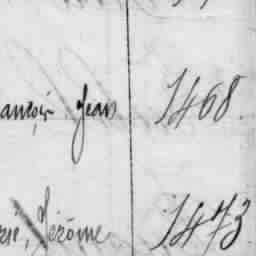 ançois, Jean 1468.
rie, Jérôme 1473